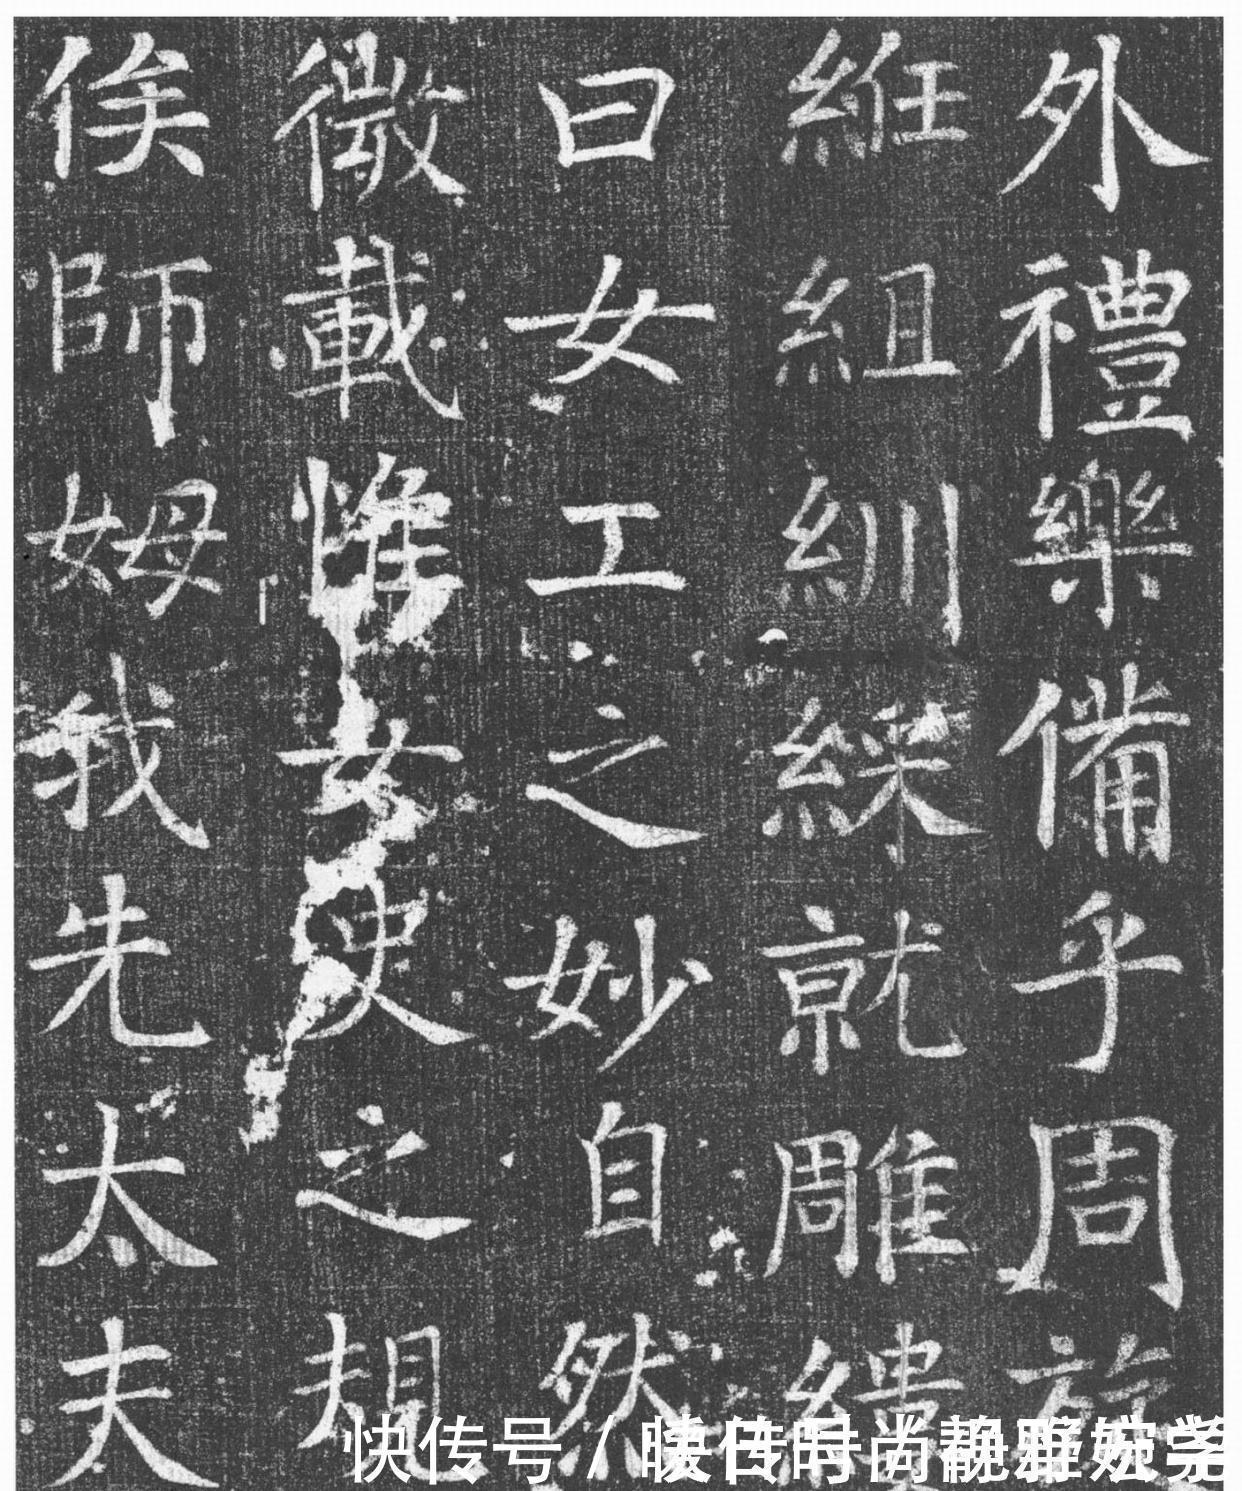 外禮樂備乎周旋
紝組紃綵就雕繢
曰女工之妙自然
微載惟女史之規
俟師姆我先太夫
快传号/